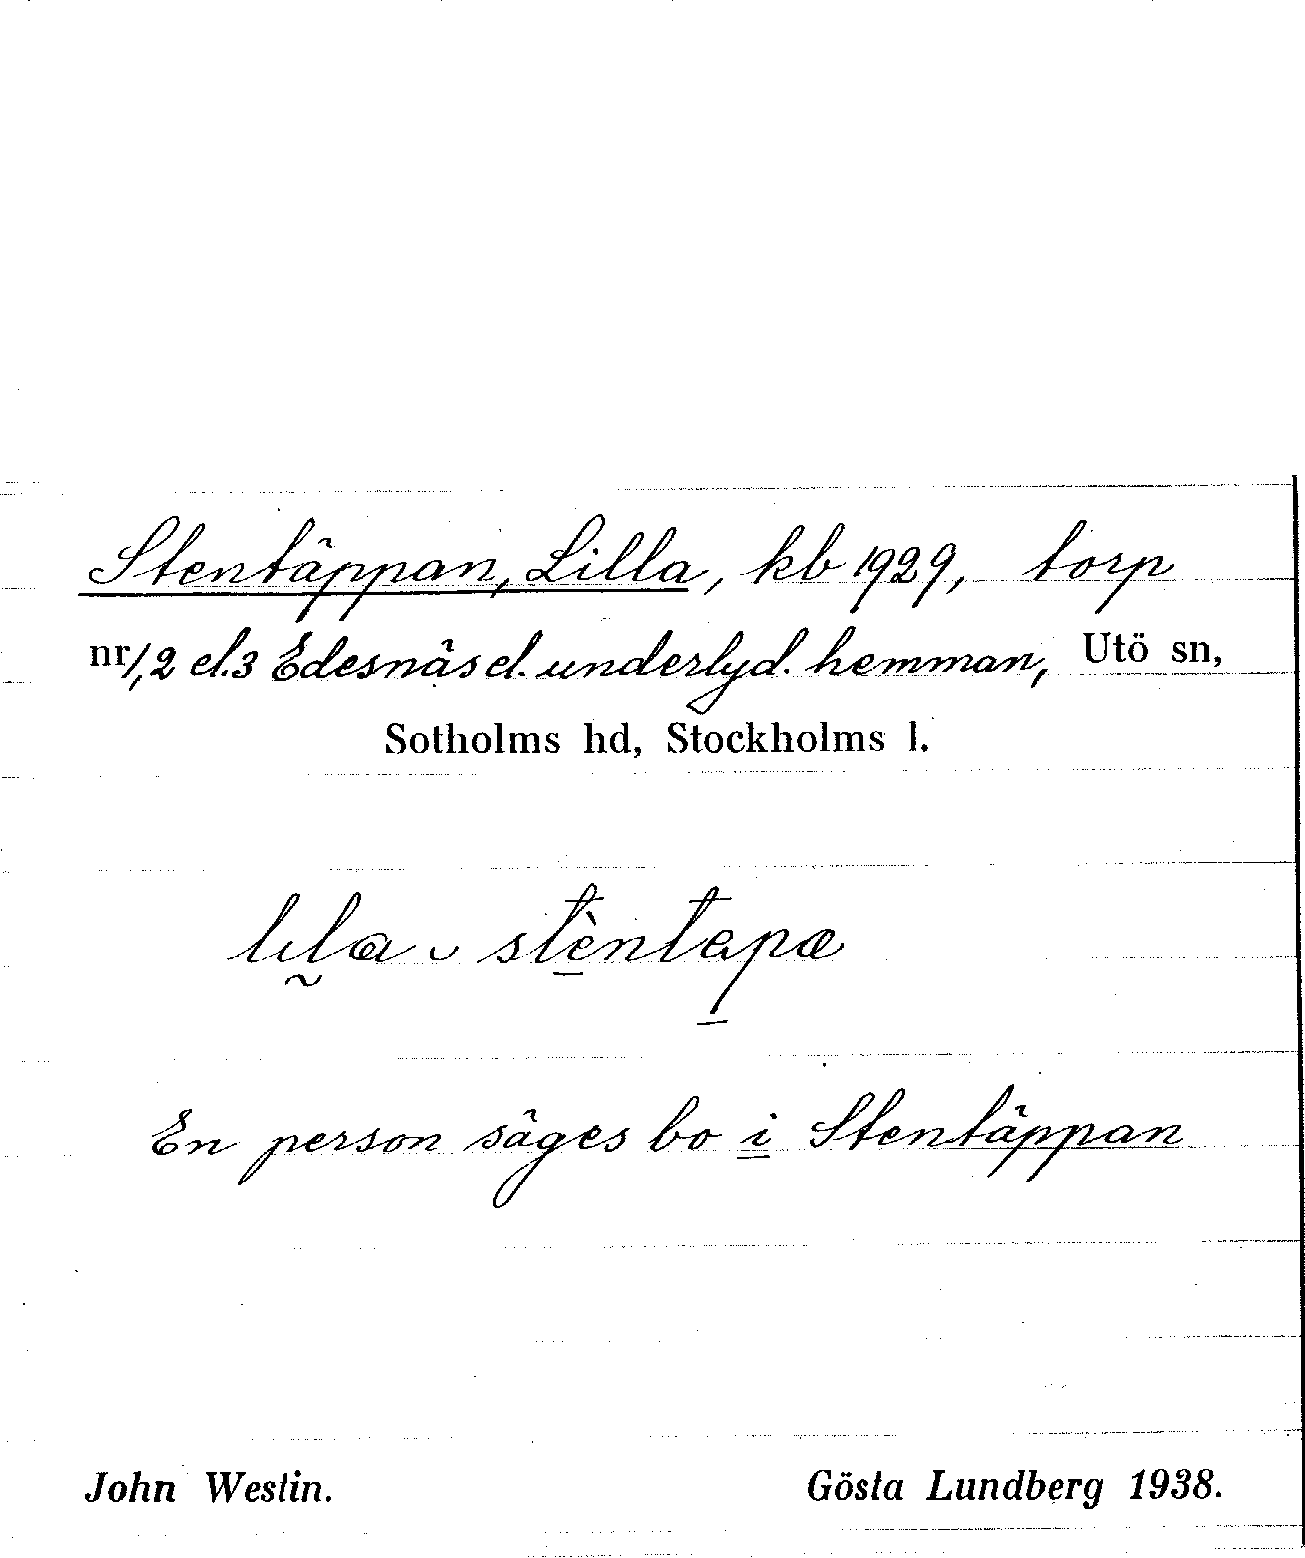 Stentäppan, Lilla, kb 1929, torp
nr 1, 2 el. 3 Edesnäs el. underlyd. hemman, Utö sn,
Sotholms hd, Stockholms l.
En person säges bo i Stentäppan
John Westin. Gösta Lundberg 1938.